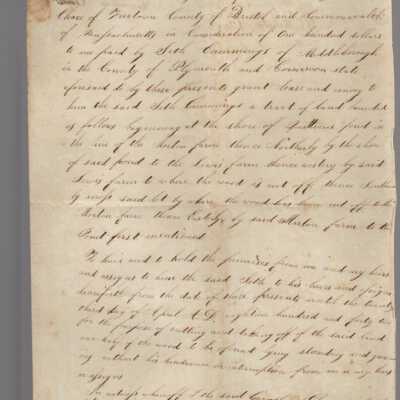 Chace of Freetown County of Bristol and Commonwealth
of Massachusetts in Consideration of One hundred dollars
to me paid by Seth Cummings of Middleborough
in the County of Plymouth and Common state
aforesaid do by these presents grant lease and convey to
him the said Seth Cummings a tract of land bounded
as follows beginning at the shore of pond in
the line of the Morton farm thence Northerly by the shore
of said pond to the Lewis farm thence westery by said
Lewis farm to where the wood is cut off thence
by said lot by where the wood has been cut off to the
Morton farm thence Easterly by said Morton farm to the
Point first mentioned
To have and to hold the premises from me and my heirs
and assigns to him the said Seth to his heirs and
from the date of these presents untill the twenty
third day of April A.D. eighteen hundred and forty two
for the purpose of cutting and taking off of the said land
any of the wood to be found standing and
without his hindrance or interruption from me or my heirs
or assigns
In witness whereof I the said